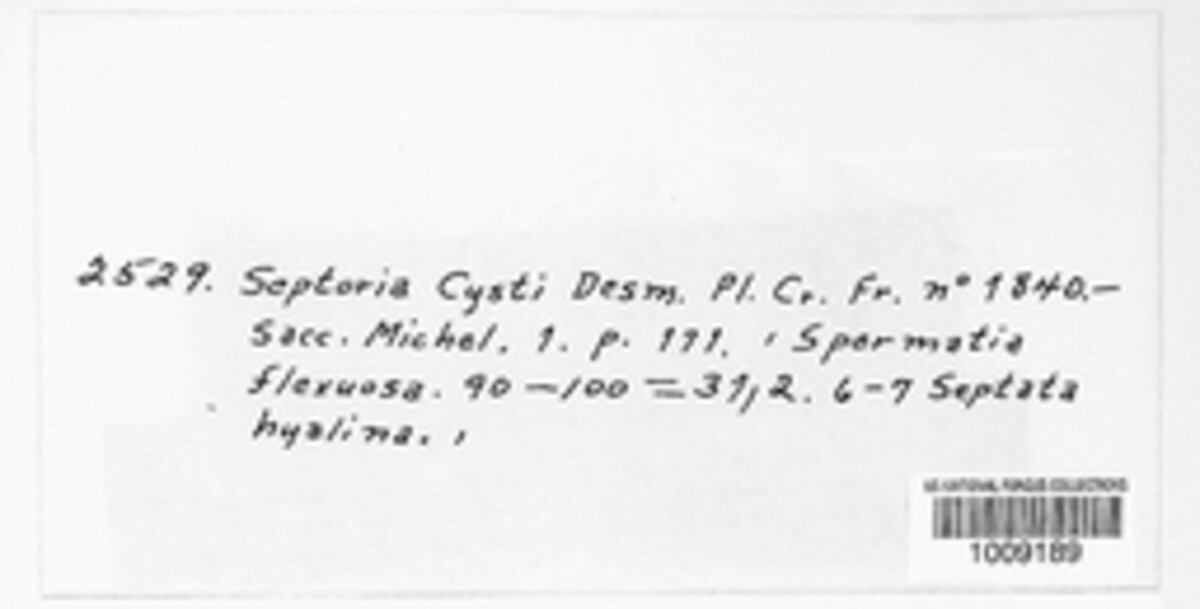 2529. Septoria Cysti Desm. Pl. Cr. Fr. nº 1840.—
Sacc. Michel. 1. p. 191. ' Spermatia
flexuosa. 90 — 100 = 31/2. 6-7 Septata
hyalina. '
US NATIONAL FUNGUS COLLECTIONS
1009189